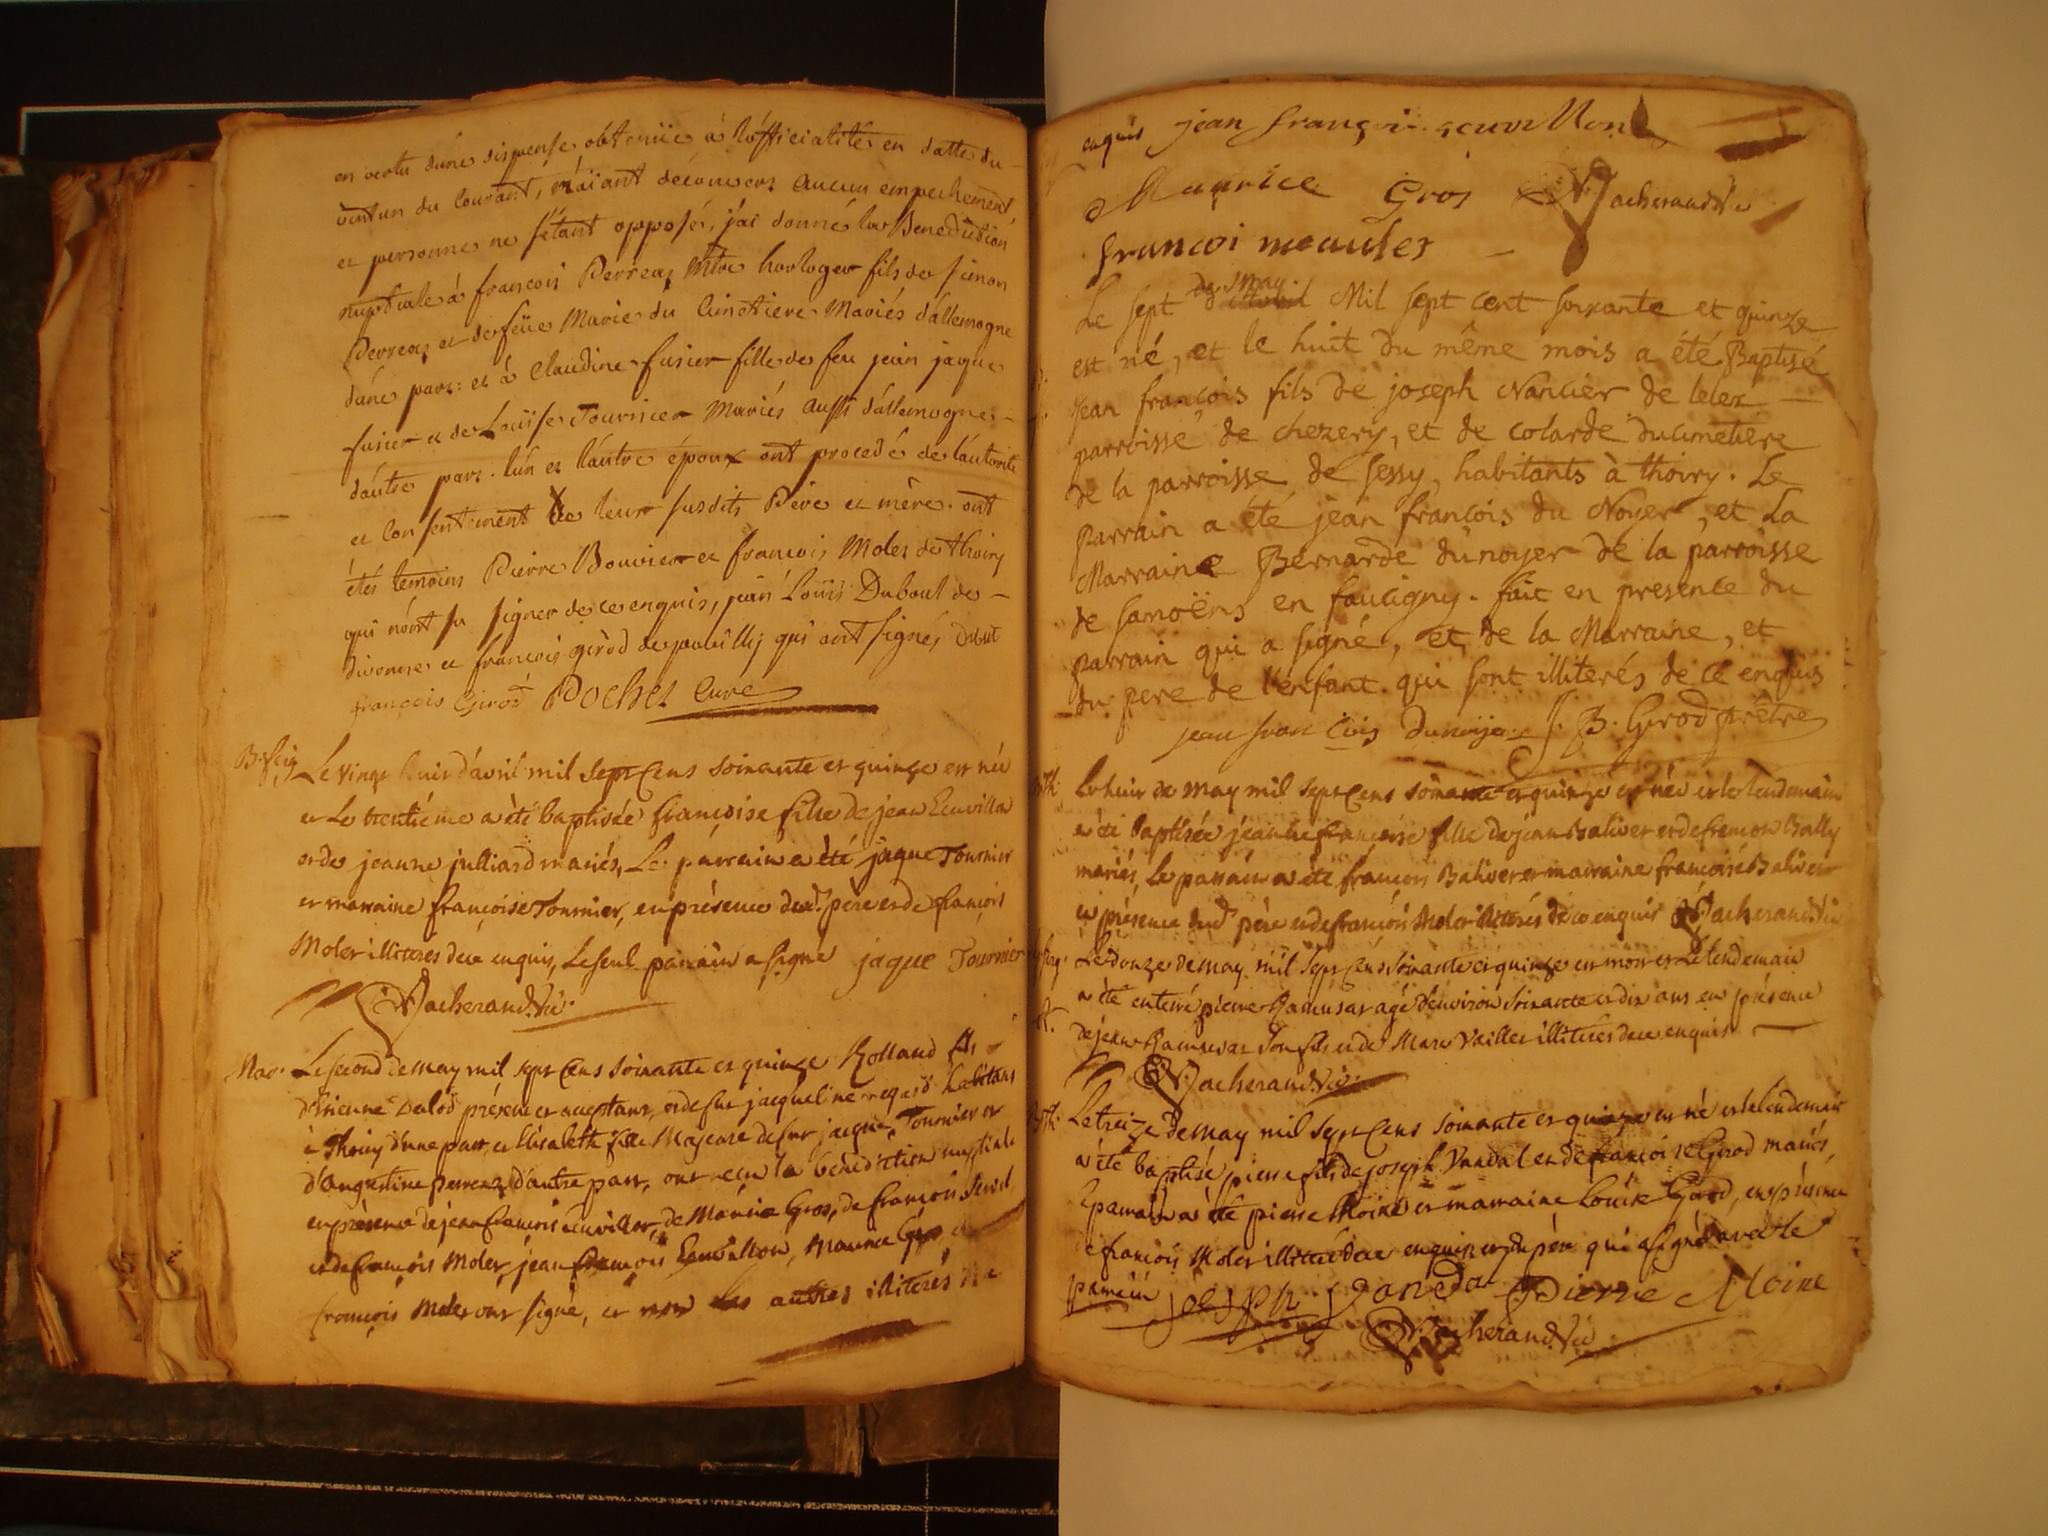 en vertu dúne dispense obtenüe à l'officialité en datte du
vint un du Courant, n'aïant découvers aucun empechement,
et personne ne s'étant opposé, j'ai donné la Benediction
nuptiale à françois Perreaz Mtre horloger fils de simon
Perreaz et de feüe Marie du Cimetiere Mariés d'allemogne
dúne pars: et à Claudine fusier fille de feu jean jaque
fusier et de Loüise Tournier Mariés aussi d'allemogne
dáutre pars. lún et láutre époux ont procedé de láutorité
et Consentiment de leur susdits Père et mère. ont
étés temoins Pierre Bouvier et françois Moler de thoiry
qui nónt su signer de ce enquis, jean Loüis Dubout de
divonne et françois girod de pouilly qui ont signés, Dubout
françois Girod Pochet Curé
Le vingt huit d'avril mil sept Cens soixante et quinze est née
et Le trentième a été baptisée françoise fille de jean Ecuvillon
et de jeanne julliard mariés, Le parrain a été jaque Tournier
et marraine françoise Tournier, en présence dud. père et de françois
Moler illiterés de ce enquis, Le seul parrain a signé jaque Tournier
Vacherand Vic.
Mar. Le second de may mil sept Cens soixante et quinze Rolland fils
d'Etienne Dalod présent et acceptant, et de fue jacqueline regard habitans
à Thoiry d'une part, et Elisabeth fille Majeure de feu jacque Tournier et
d'Augustine perreaz d'autre part, ont reçu la bénédiction nuptiale
en présence de jean françois Ecuvillon, de Maurice Gros, de françois
et de françois Moler, jean françois Ecuvillon, Maurice Gros,
françois Moler ont signé, et non les autres illiterés de ce
enquis jean françois ecuvillon
Maurice Gros Vacherand Vic
francoi meauler
Le sept de May Mil sept cent soixante et quinze
est né, et le huit du même mois a été Baptisé
jean françois fils de joseph Nancier de lelex
parroisse de chezery, et de colarde ducimetiere
de la parroisse de sessy, habitants à thoiry. Le
Parrain a été jean françois du Noyer, et La
Marraine Bernarde dunoyer de la parroisse
de samoëns en faucigny. fait en presence du
parrain qui a signé, et de la Marraine, et
du pere de l'enfant qui sont illiterés de ce enquis
jean fran cois Dunoije. J. B. Girod prêtre
Le huit de may mil sept Cens soixante et quinze est née et le lendemain
a été baptisée jeanne françoise fille de jean Baliver et de françoise Bally
mariés, Le parrain a été françois Baliver et marraine françoise Baliver
en présence dud. père et de françois Moler illiterés de ce enquis Vacherand Vic
Le douze de may mil sept Cens soixante et quinze est mort et Le lendemain
a été enterré pierre Ramusat agé d'environ soixante et dix ans en présence
de jean Ramusat son fils et de Marc Vaillet illiterés de ce enquis
Vacherand Vic
Le treize de may mil sept Cens soixante et quinze est né et le lendemain
a été baptisé pierre fils de joseph Vandal et de françoise Girod mariés,
Le parrain a été pierre Moine et marraine Louise Girod, en présence
de françois Moler illiteré de ce enquis et du père qui a signé avec le
parrain joesph Vandal Pierre Moine
Vacherand Vic